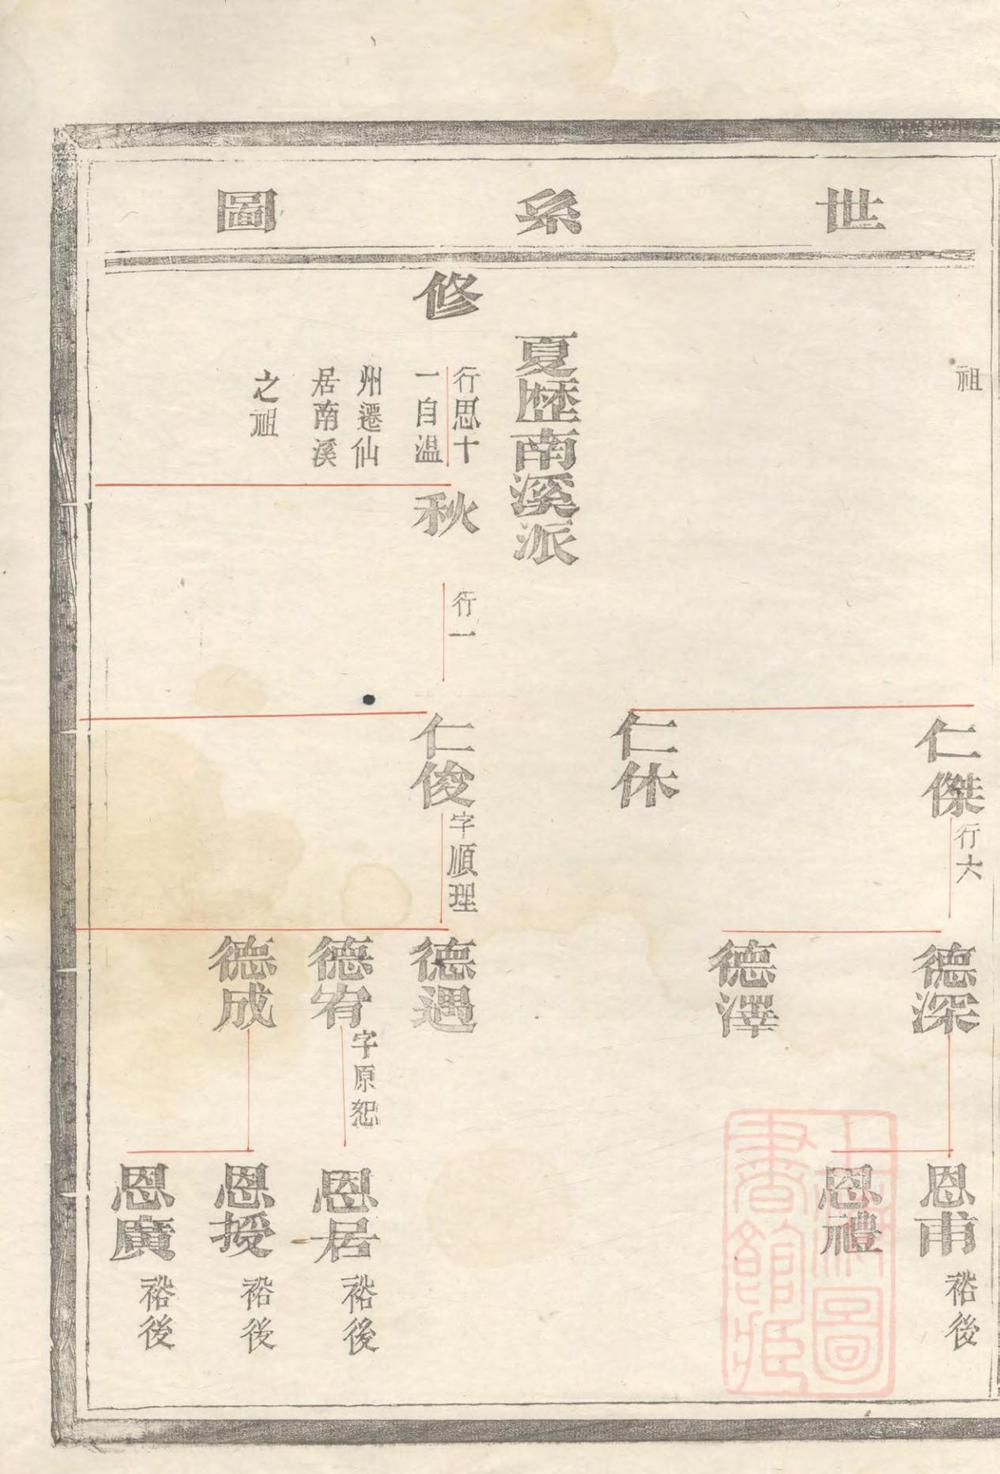 世系圖
祖
仁傑
行六
德深
恩甫
裕後
恩禮
德澤
仁休
夏歷南溪派
修
行思十
一自温
州遷仙
居南溪
之祖
秋
行一
仁俊
字順理
德遇
德宥
字原恕
恩居
裕後
德成
恩授
裕後
恩廣
裕後
上海圖
書館藏